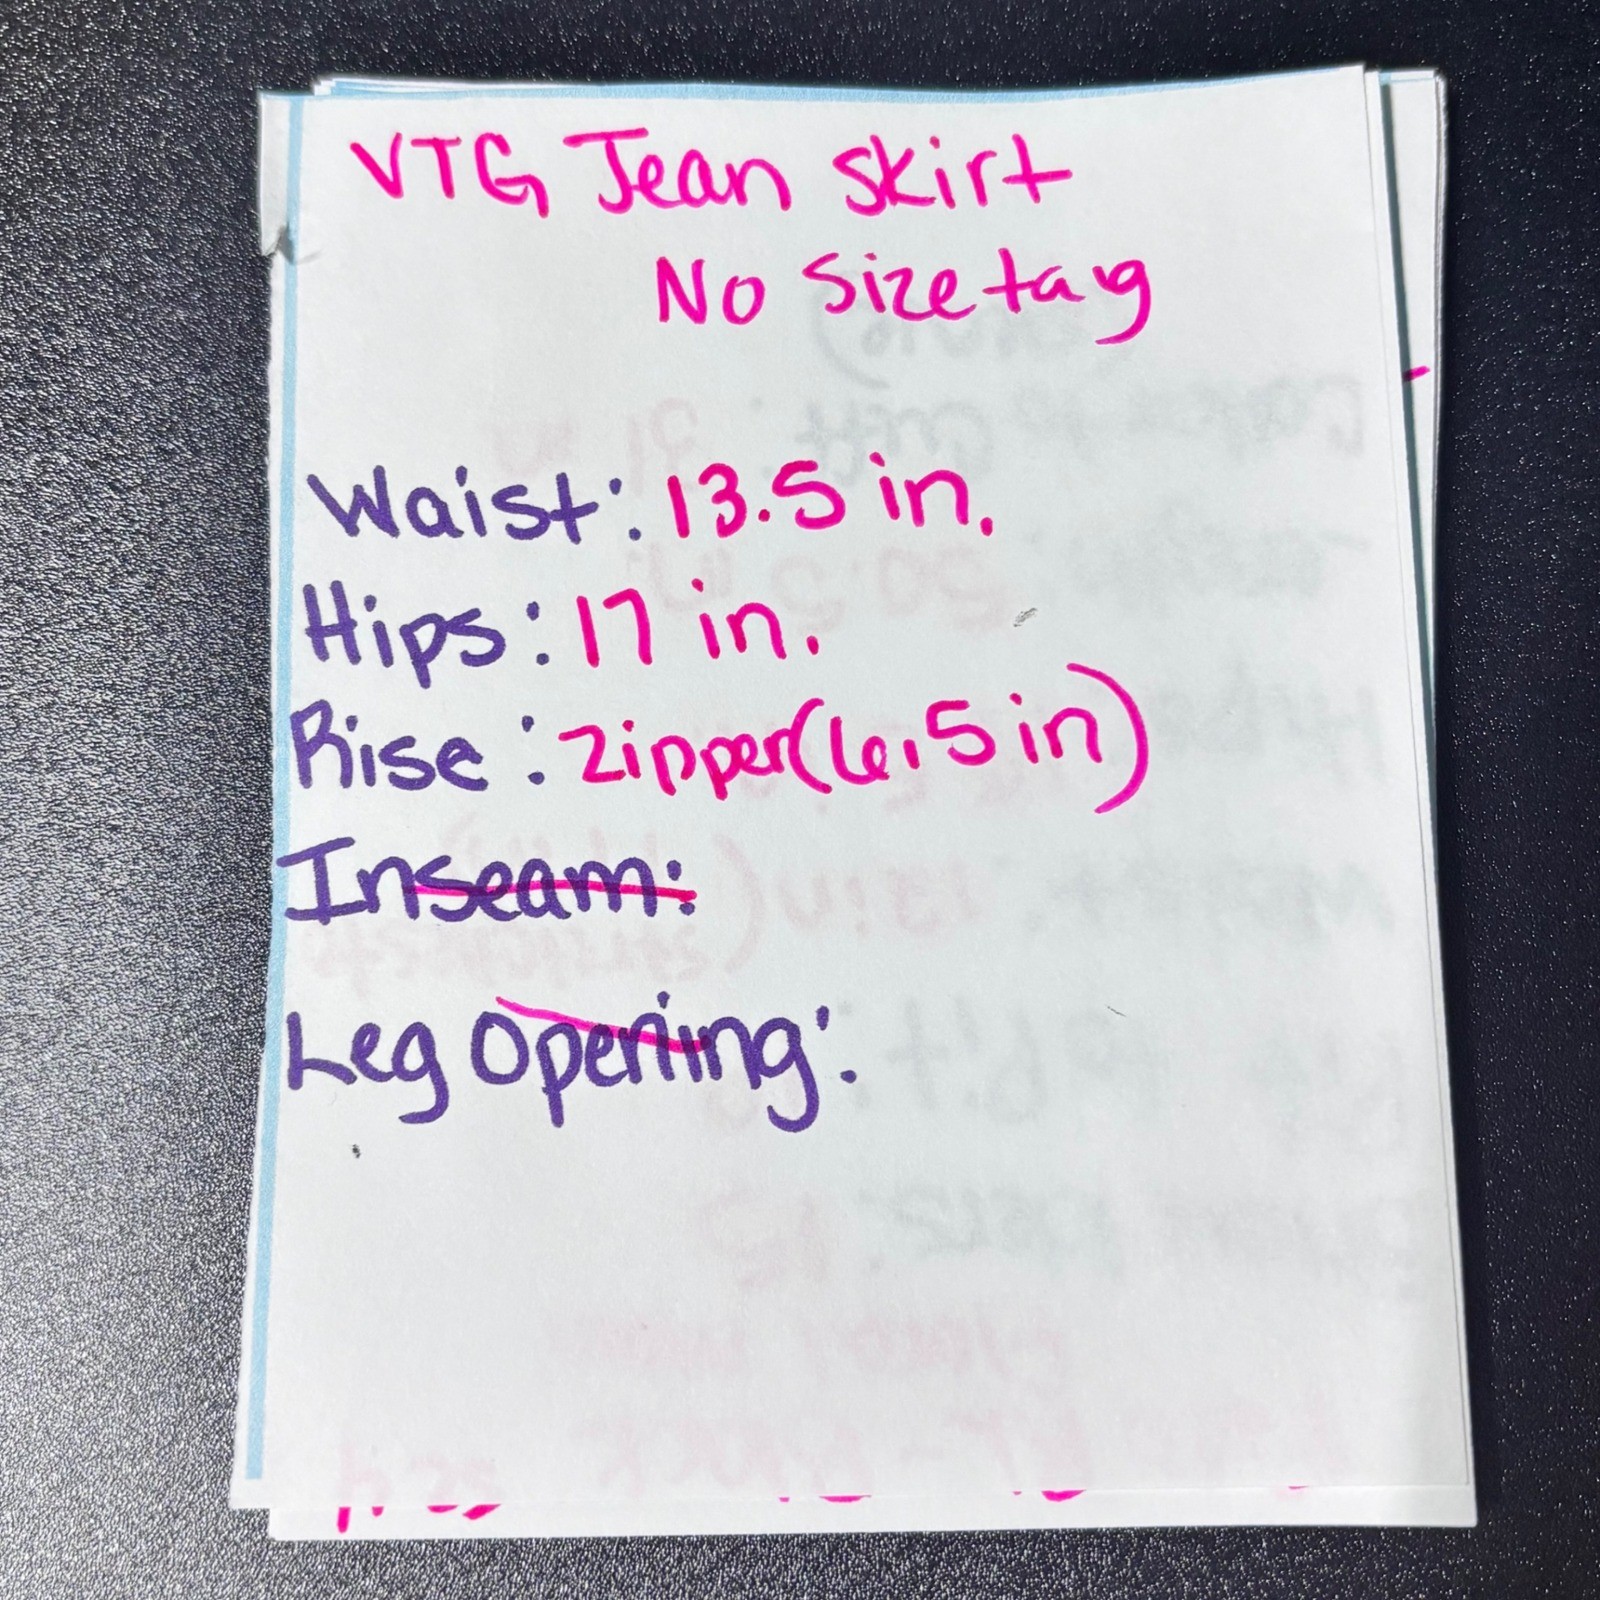 VTG Jean skirt
No Size tag
Waist: 13.5 in.
Hips: 17 in.
Rise: zipper(6.5 in)
Inseam:
Leg Opening: